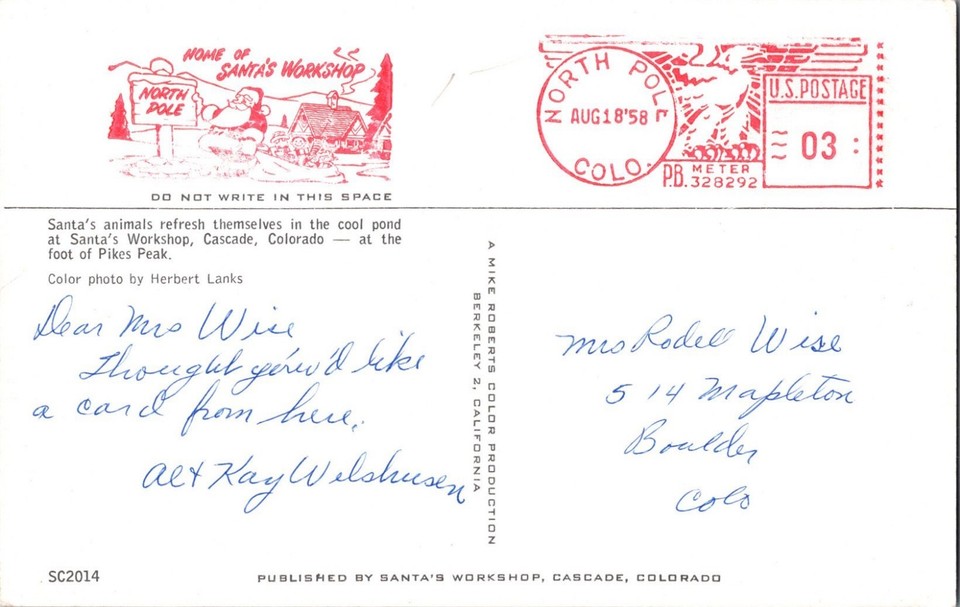 HOME OF
SANTA'S WORKSHOP
NORTH
POLE
DO NOT WRITE IN THIS SPACE
NORTH POLE
AUG 18 '58
COLO.
P.B. METER
328292
U.S. POSTAGE
03
Santa's animals refresh themselves in the cool pond
at Santa's Workshop, Cascade, Colorado — at the
foot of Pikes Peak.
Color photo by Herbert Lanks
Dear Mrs Wise
Thought you'd like
a card from here.
Al + Kay Welshusen
A MIKE ROBERTS COLOR PRODUCTION
BERKELEY 2, CALIFORNIA
Mrs Rodell Wise
514 Mapleton
Boulder
Colo
SC2014
PUBLISHED BY SANTA'S WORKSHOP, CASCADE, COLORADO